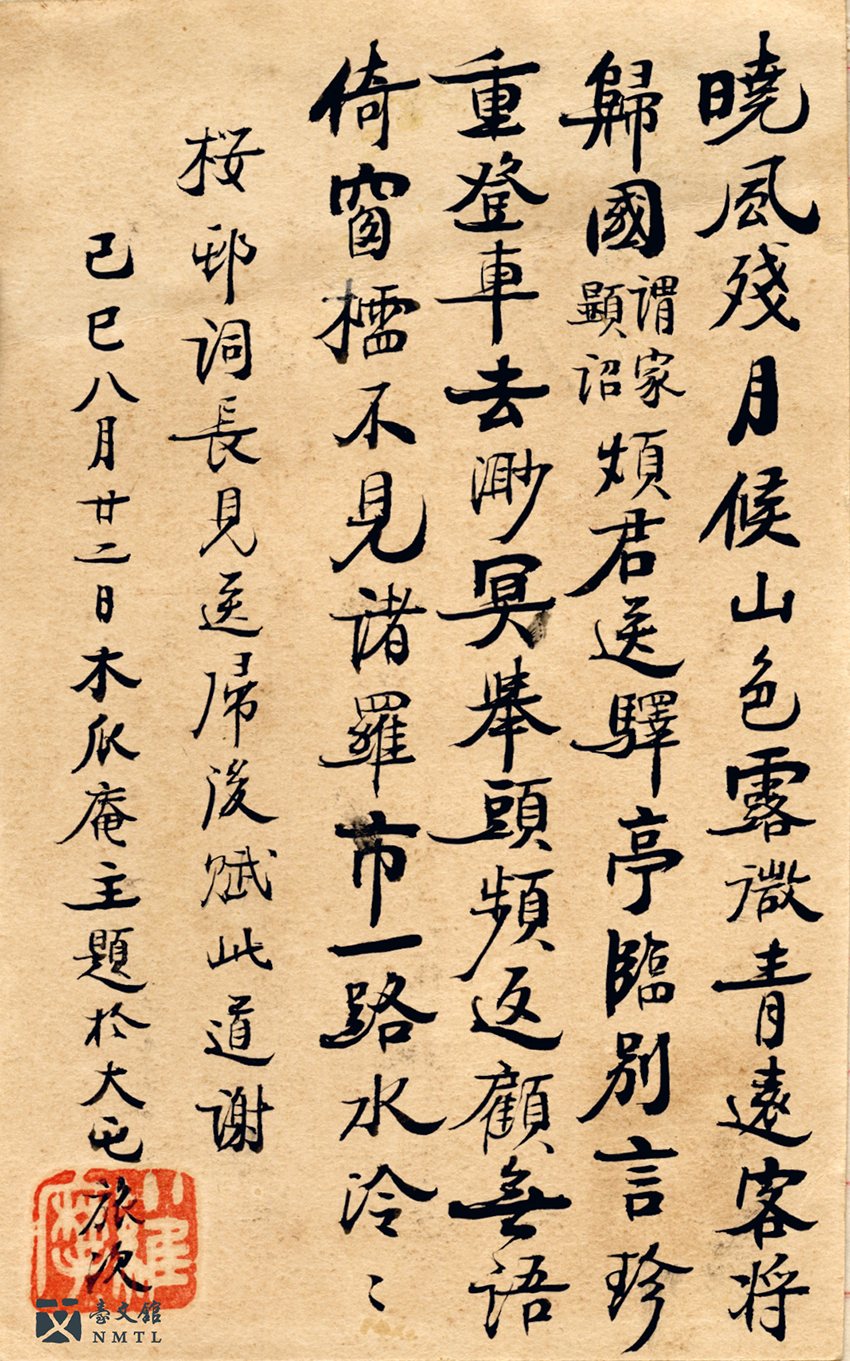 曉風殘月候山色露微青遠客將
歸國謂家顯詔煩君送驛亭臨別言珍
重登車去渺冥舉頭頻返顧無語
倚窗櫺不見諸羅市一路水泠〻
桜邨詞長見送歸後賦此道謝
己巳八月廿二日木瓜庵主題於大屯旅次
臺文館
NMTL